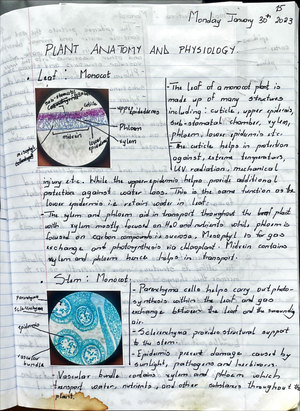 15
Monday Janary 30th 2023
PLANT ANATOMY AND PHYSIOLOGY
Leaf : Monocot
cuticle
upper epidermis
Phloem
xylem
midvein
lower epidermis
- The leaf of a monocot plant is
made up of many structures
including : cuticle, upper epidermis,
sub-stomatal chamber, xylem,
phloem, lower epidermis etc.
- The cuticle helps in protection
against, extreme temperature,
UV radiation, mechanical
injury etc. While the upper epidermis helps provide additional
protection against water loss. This is the same function as the
lower epidermis i.e retains water in leaf.
- The xylem and phloem aid in transport throughout the plant
with xylem mostly focused on H2O and nutrients while phloem is
focused on carbon. Mesophyll is for gas
exchange and photosynthesis via chloroplast. Midvein contains
xylem and phloem hence helps in transport.
Stem : Monocot
Parenchyma
Sclerenchyma
epidermis
vascular
bundle
- Parenchyma cells helps carry out photo-
synthesis within the leaf and gas
exchange between the leaf and the surrounding
air.
- Sclerenchyma provides structural support
to the stem.
- Epidermis prevent damage caused by
sunlight, pathogens and herbivores.
- Vascular bundle contains xylem and phloem which
transport water, nutrients and other substances throughout the
plant.